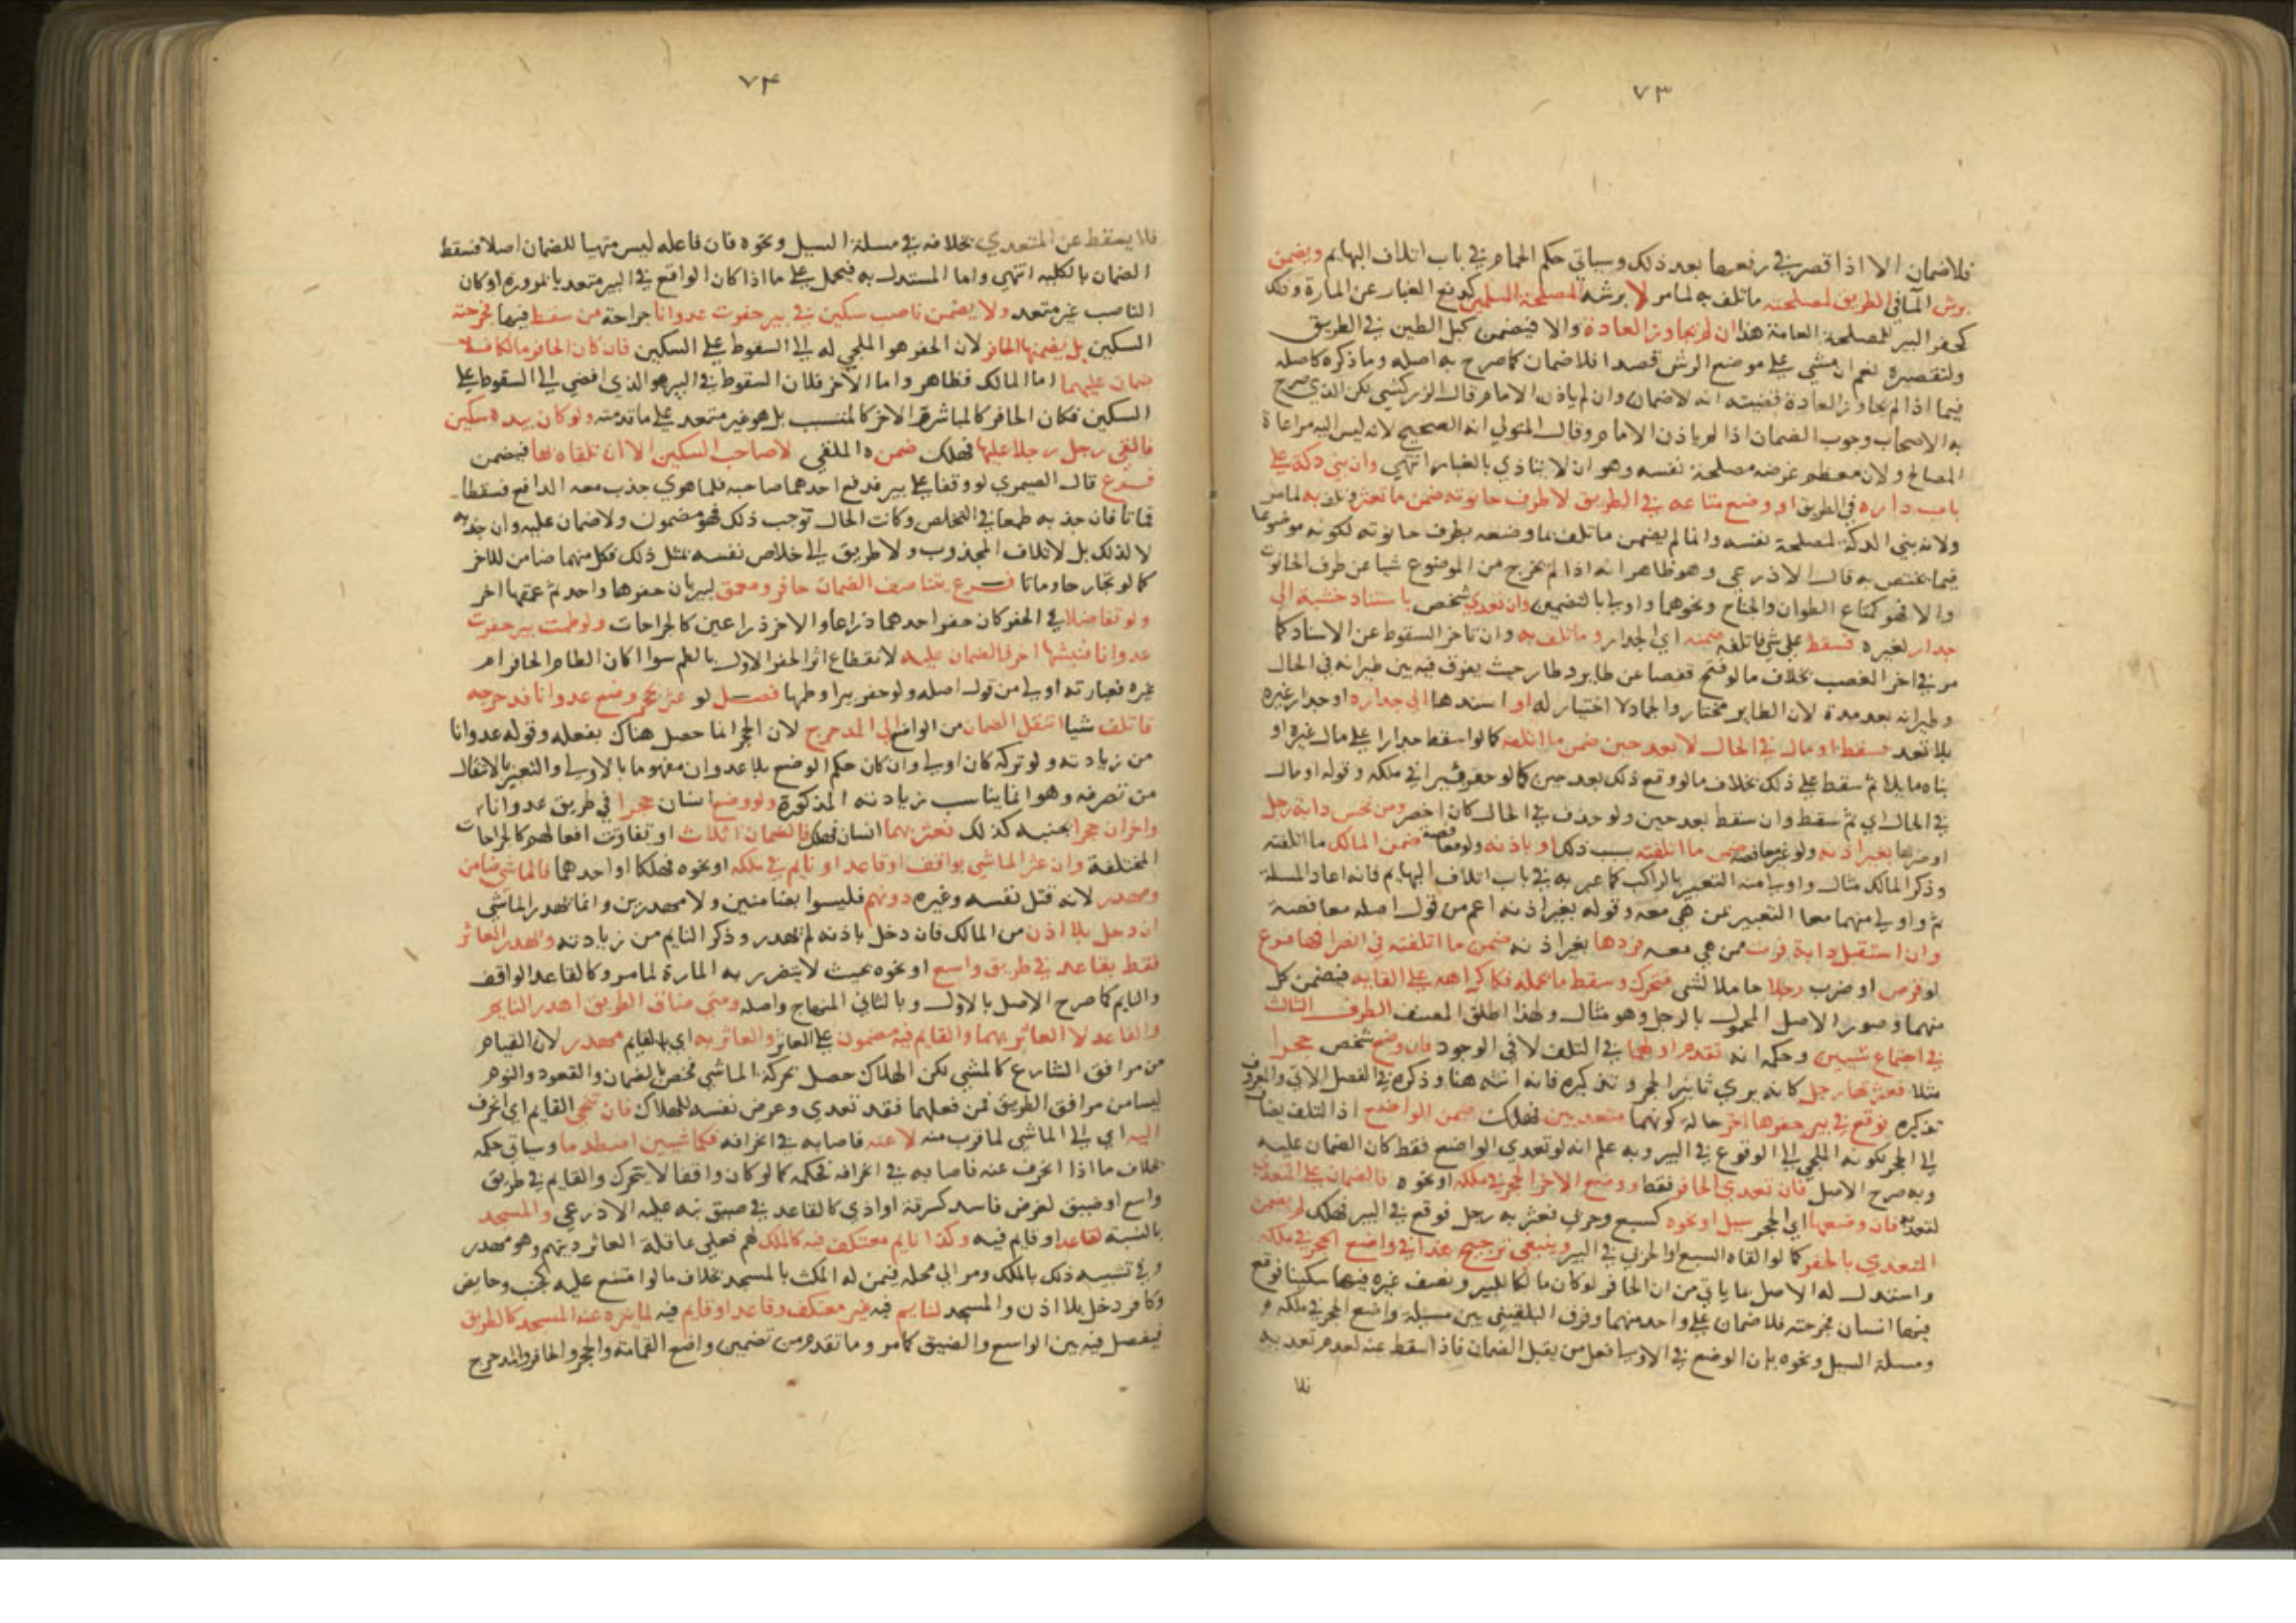 ٧٣
فلا ضمان الا اذا قصر في رفعها بعد ذلك وسياتي حكم الحمام في باب اتلاف البهايم ويضمن
برش الما في الطريق لمصلحته ما تلف به لما مر لا برشه لمصلحة المسلمين كدفع الغبار عن المارة وذلك
كحفر البير للمصلحة العامة هذا ان لم يجاوز العادة والا فيضمن كبل الطين في الطريق
ولتقصيره نعم ان مشي على موضع الرش قصدا فلا ضمان كما صرح به اصله وما ذكره كاصله
فيما اذا لم يجاوز العادة قضيته انه لا ضمان وان لم ياذن الامام وقال الزركشي لكن الذي صرح
به الاصحاب وجوب الضمان اذا لم ياذن الامام وقال المتولي انه الصحيح لانه ليس اليه مراعاة
المصالح ولان معظم غرضه مصلحة نفسه وهو ان لا يتاذي بالغبار انتهي وان بني دكة على
باب داره في الطريق او وضع متاعه في الطريق لا طرف حانوته ضمن ما تعثر وتلف به لما مر
ولانه بني الدكة لمصلحة نفسه وانما لم يضمن ما تلف بما وضعه بطرف حانوته لكونه موضوعا
فيما يختص به قال الاذرعي وهو ظاهر انه اذا لم يخرج من الموضوع شيا عن طرف الحانوت
والا فهو كمتاع الطوان والجناح ونحوهما واولي بالتضمين وان تعدي شخص باستناد خشبة الي
جدار لغيره فسقط على شي فاتلفه ضمنه اي الجدار وما تلف به وان تاخر السقوط عن الاسناد كما
مر في اخر الغصب بخلاف ما لو فتح قفصا عن طاير وطار حيث يفرق فيه بين طيرانه في الحال
وطيرانه بعد مدة لان الطاير مختار والجماد لا اختيار له او اسندها الي جداره او جدار غيره
بلا تعد فسقط او مال في الحال لا بعد حين ضمن ما اتلفه كما لو اسقط جدارا على مال غيره او
بناه مايلا ثم سقط على ذلك بخلاف ما لو وقع ذلك بعد حين كما لو حفر بيرا في ملكه وقوله او مال
في الحال اي ثم سقط وان سقط بعد حين ولو حذف في الحال كان اخصر ومن نخس دابة رجل
او ضربها بغير اذنه ولو غير معافصة ضمن ما اتلفته بسبب ذلك او باذنه ولو معافصة ضمن المالك ما اتلفته
وذكر المالك مثال واولي منه التعبير بالراكب كما عبر به في باب اتلاف البهايم فانه اعاد المسلة
ثم واولي منهما معا التعبير بمن هي معه وقوله بغير اذنه اعم من قول اصله معافصة
وان استقبل دابة فرت ممن هي معه فردها بغير اذنه ضمن ما اتلفته في انصرافها فرع
لو قرص او ضرب رجلا حاملا لشي فتحرك وسقط ما يحمله فكاكراهه على القايه فيضمن كل
منهما وصور الاصل المحمول بالرجل وهو مثال ولهذا اطلق المصنف الطرف الثالث
في اجتماع شيين وحكمه انه تقدم اولهما في التلف لا في الوجود فان وضع شخص حجرا
مثلا فعثر بها رجل كانه يري تانيث الحجر وتذكيره فانه انثه هنا وذكره في الفصل الاتي والمعروف
تذكيره فوقع في بير حفرها اخر حالة كونهما متعديين فهلك ضمن الواضع اذ التلف يضاف
الي الحجر لكونه الملجي الي الوقوع في البير وبه علم انه لو تعدي الواضع فقط كان الضمان عليه
وبه صرح الاصل فان تعدي الحافر فقط ووضع الاخر الحجر في ملكه او نحوه فالضمان على المتعدي
لتعديه فان وضعها اي الحجر سيل او نحوه كسبع وحربي فعثر به رجل فوقع في البير فهلك لم يضمن
المتعدي بالحفر كما لو القاه السبع او الحربي في البير وينبغي ترجيح هذا في واضع الحجر في ملكه
واستدل له الاصل بما ياتي من ان الحافر لو كان مالكا للبير ونصب غيره فيها سكينا فوقع
فيها انسان فجرحته فلا ضمان على واحد منهما وفرق البلقيني بين مسئلة واضع الحجر في ملكه و
ومسلة السيل ونحوه بان الوضع في الاولي فعل من يقبل الضمان فاذا سقط عنه لعدم تعديه
فلا
٧٤
فلا يسقط عن المتعدي بخلافه في مسلة السيل ونحوه فان فاعله ليس متهيا للضمان اصلا فسقط
الضمان بالكلية انتهي واما المستدل به فيحمل على ما اذا كان الواقع في البير متعديا بمروره او كان
الناصب غير متعد ولا يضمن ناصب سكين في بير حفرت عدوانا جراحة من سقط فيها فجرحته
السكين بل يضمنها الحافر لان الحفر هو الملجي له الي السقوط على السكين فان كان الحافر مالكا فلا
ضمان عليهما اما المالك فظاهر واما الاخر فلان السقوط في البير هو الذي افضي الي السقوط على
السكين فكان الحافر كالمباشر والاخر كالمتسبب بل هو غير متعد على ما قدمته ولو كان بيده سكين
فالقي رجل رجلا عليها فهلك ضمنه الملقي لا صاحب السكين الا ان تلقاه بها فيضمن
فرع قال الصيمري لو وقفا على بير فدفع احدهما صاحبه فلما هوي جذب معه الدافع فسقطا
فماتا فان جذبه طمعا في التخلص وكانت الحال توجب ذلك فهو مضمون ولا ضمان عليه وان جذبه
لا لذلك بل لاتلاف المجذوب ولا طريق الي خلاص نفسه بمثل ذلك فكل منهما ضامن للاخر
كما لو تجارحا وماتا فرع يتناصف الضمان حافر ومعمق لبير بان حفرها واحد ثم عمقها اخر
ولو تفاضلا في الحفر كان حفر احدهما ذراعا والاخر ذراعين كالجراحات ولو طمت بير حفرت
عدوانا فنبشها اخر فالضمان عليه لانقطاع اثر الحفر الاول بالطم سوا اكان الطام الحافر ام
غيره فعبارته اولي من قول اصله ولو حفر بيرا وطمها فصل لو عثر بحجر وضع عدوانا فدحرجه
فاتلف شيا انتقل الضمان من الواضع الي المدحرج لان الحجر انما حصل هناك بفعله وقوله عدوانا
من زيادته ولو تركه كان اولي وان كان حكم الوضع بلا عدوان مفهوما بالاولي والتعبير بالانتقال
من تصرفه وهو انما يناسب زيادته المذكورة ولو وضع انسان حجرا في طريق عدوانا
واخران حجرا بجنبه كذلك فعثر بهما انسان فهلك فالضمان اثلاث او تفاوت افعالهم كالجراحات
المختلفة وان عثر الماشي بواقف او قاعد او نايم في ملكه او نحوه فهلكا او احدهما فالماشي ضامن
ومهدر لانه قتل نفسه وغيره دونهم فليسوا بضامنين ولا مهدرين وانما يهدر الماشي
ان دخل بلا اذن من المالك فان دخل باذنه لم يهدر وذكر النايم من زيادته ويهدر العاثر
فقط بقاعد في طريق واسع او نحوه بحيث لا يتضرر به المارة لما مر وكالقاعد الواقف
والنايم كما صرح الاصل بالاول وبالثاني المنهاج واصله ومتي ضاق الطريق اهدر النايم
والقاعد لا العاثر بهما والقايم فيه مضمون على العاثر والعاثر به اي بالقايم مهدر لان القيام
من مرافق الشارع كالمشي لكن الهلاك حصل بحركة الماشي فخص بالضمان والقعود والنوم
ليسا من مرافق الطريق فمن فعلهما فقد تعدي وعرض نفسه للهلاك فان تنحي القايم اي انحرف
اليه اي الي الماشي لما قرب منه لا عنه فاصابه في انحرافه فكماشيين اصطدما وسياتي حكمه
بخلاف ما اذا انحرف عنه فاصابه في انحرافه فحكمه كما لو كان واقفا لا يتحرك والقايم في طريق
واسع او ضيق لغرض فاسد كسرقة او اذي كالقاعد في ضيق نبه عليه الاذرعي والمسجد
بالنسبة لقاعد او قايم فيه وكذا نايم معتكف فيه كالملك لهم فعلي عاقلة العاثر ديتهم وهو مهدر
وفي تشبيه ذلك بالملك ومر الي محله فيمن له المكث بالمسجد بخلاف ما لو امتنع عليه كجنب وحايض
وكافر دخل بلا اذن والمسجد لنايم فيه غير معتكف وقاعد او قايم فيه لما ينزه عنه المسجد كالطريق
فيفصل فيه بين الواسع والضيق كما مر وما تقدم من تضمين واضع القمامة والحجر والحافر والمدحرج